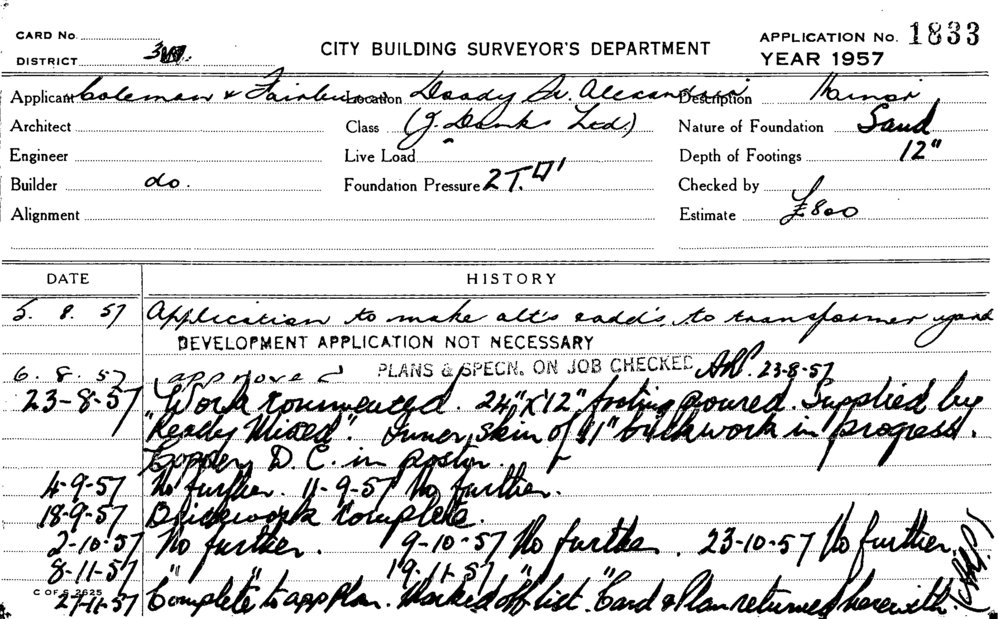 CARD No.
DISTRICT 3
CITY BUILDING SURVEYOR'S DEPARTMENT
APPLICATION No. 1833
YEAR 1957
Applicant Coleman & Location Doody St. Alexandria Description Minor
Architect Class (J. Danks Ltd.) Nature of Foundation Sand
Engineer Live Load Depth of Footings 12"
Builder do. Foundation Pressure 2T. □' Checked by
Alignment Estimate £800
DATE HISTORY
5. 8. 57 Application to make alt's & add's, to transformer yard
DEVELOPMENT APPLICATION NOT NECESSARY
6. 8. 57 approved PLANS & SPECN. ON JOB CHECKED 23-8-57
23-8-57 Work commenced. 24" x 12" footing poured. Supplied by
"Ready Mixed". Inner skin of 11" brickwork in progress.
Copper D.C. in positn.
4-9-57 No further. 11-9-57 No further.
18-9-57 Brickwork complete.
2-10-57 No further. 9-10-57 No further. 23-10-57 No further.
8-11-57 " " 19-11-57 " "
C OF S 2625
27-11-57 "Complete" to app Plan. Marked off list. Card & Plan returned herewith.